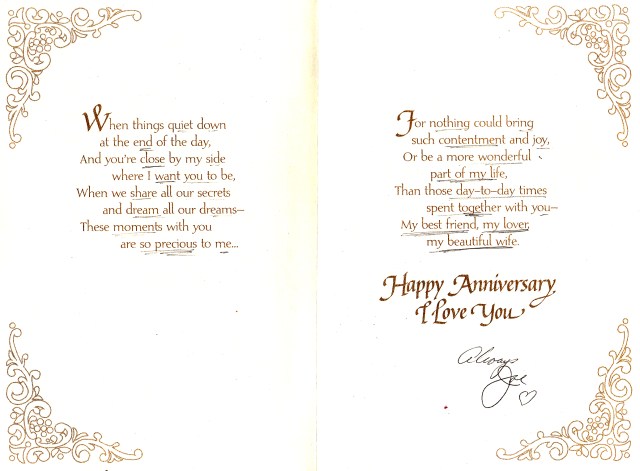 When things quiet down
at the end of the day,
And you're close by my side
where I want you to be,
When we share all our secrets
and dream all our dreams–
These moments with you
are so precious to me...
For nothing could bring
such contentment and joy,
Or be a more wonderful
part of my life,
Than those day–to–day times
spent together with you–
My best friend, my lover,
my beautiful wife.
Happy Anniversary
I Love You
Always
Joe